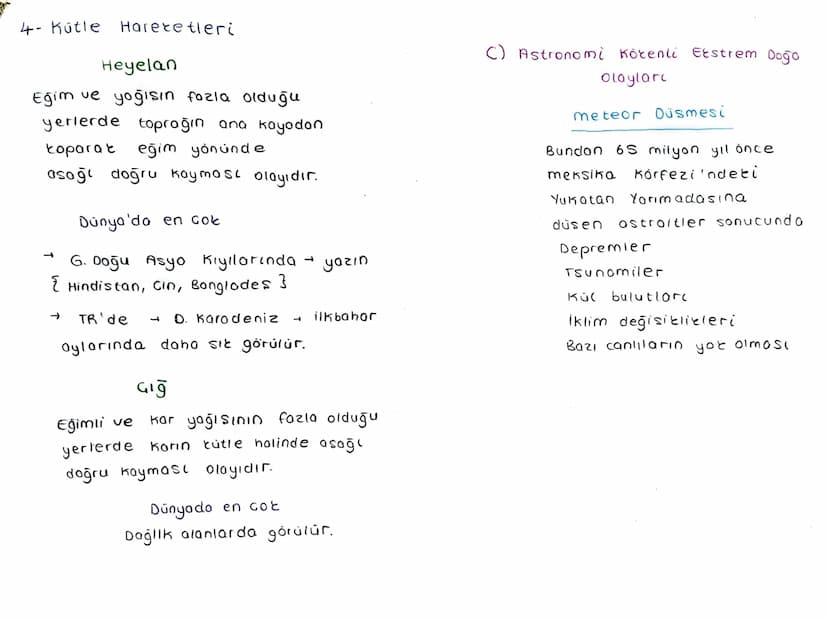 4- Kütle Hareketleri
Heyelan
Eğim ve yağışın fazla olduğu
yerlerde toprağın ana kayadan
koparak eğim yönünde
aşağı doğru kayması olayıdır.
Dünya'da en çok
→ G. Doğu Asya Kıyılarında → yazın
{ Hindistan, Çin, Bangladeş }
→ TR'de → D. Karadeniz → ilkbahar
aylarında daha sık görülür.
Çığ
Eğimli ve kar yağışının fazla olduğu
yerlerde karın kütle halinde aşağı
doğru kayması olayıdır.
Dünyada en çok
Dağlık alanlarda görülür.
C) Astronomi Kökenli Ekstrem Doğa
Olayları
Meteor Düşmesi
Bundan 65 milyon yıl önce
meksika Körfezi'ndeki
Yukatan Yarımadasına
düşen astroitler sonucunda
Depremler
Tsunamiler
Kül bulutları
İklim değişiklikleri
Bazı canlıların yok olması